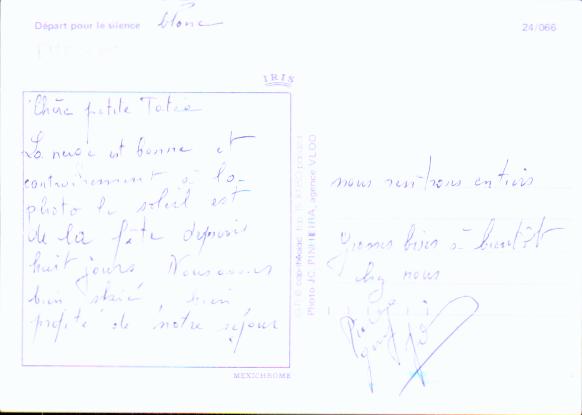 Départ pour le silence blanc
24/066
IRIS
Chère petite Tatie
La neige est bonne et
contrairement à la
photo le soleil est
de la fête depuis
huit jours Nous avons
bien skié, bien
profité de notre séjour
MEXICHROME
Photo J.C. PINHEIRA, agence VLOO
nous rentrons entiers
grosses bises à bientôt
chez nous